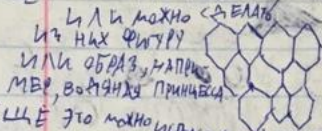 ИЛИ МОЖНО СДЕЛАТЬ
ИЗ НИХ ФИГУРУ
ИЛИ ОБРАЗ, НАПРИ-
МЕР, ВОДЯНАЯ ПРИНЦЕССА.
ЩЁ ЭТО МОЖНО